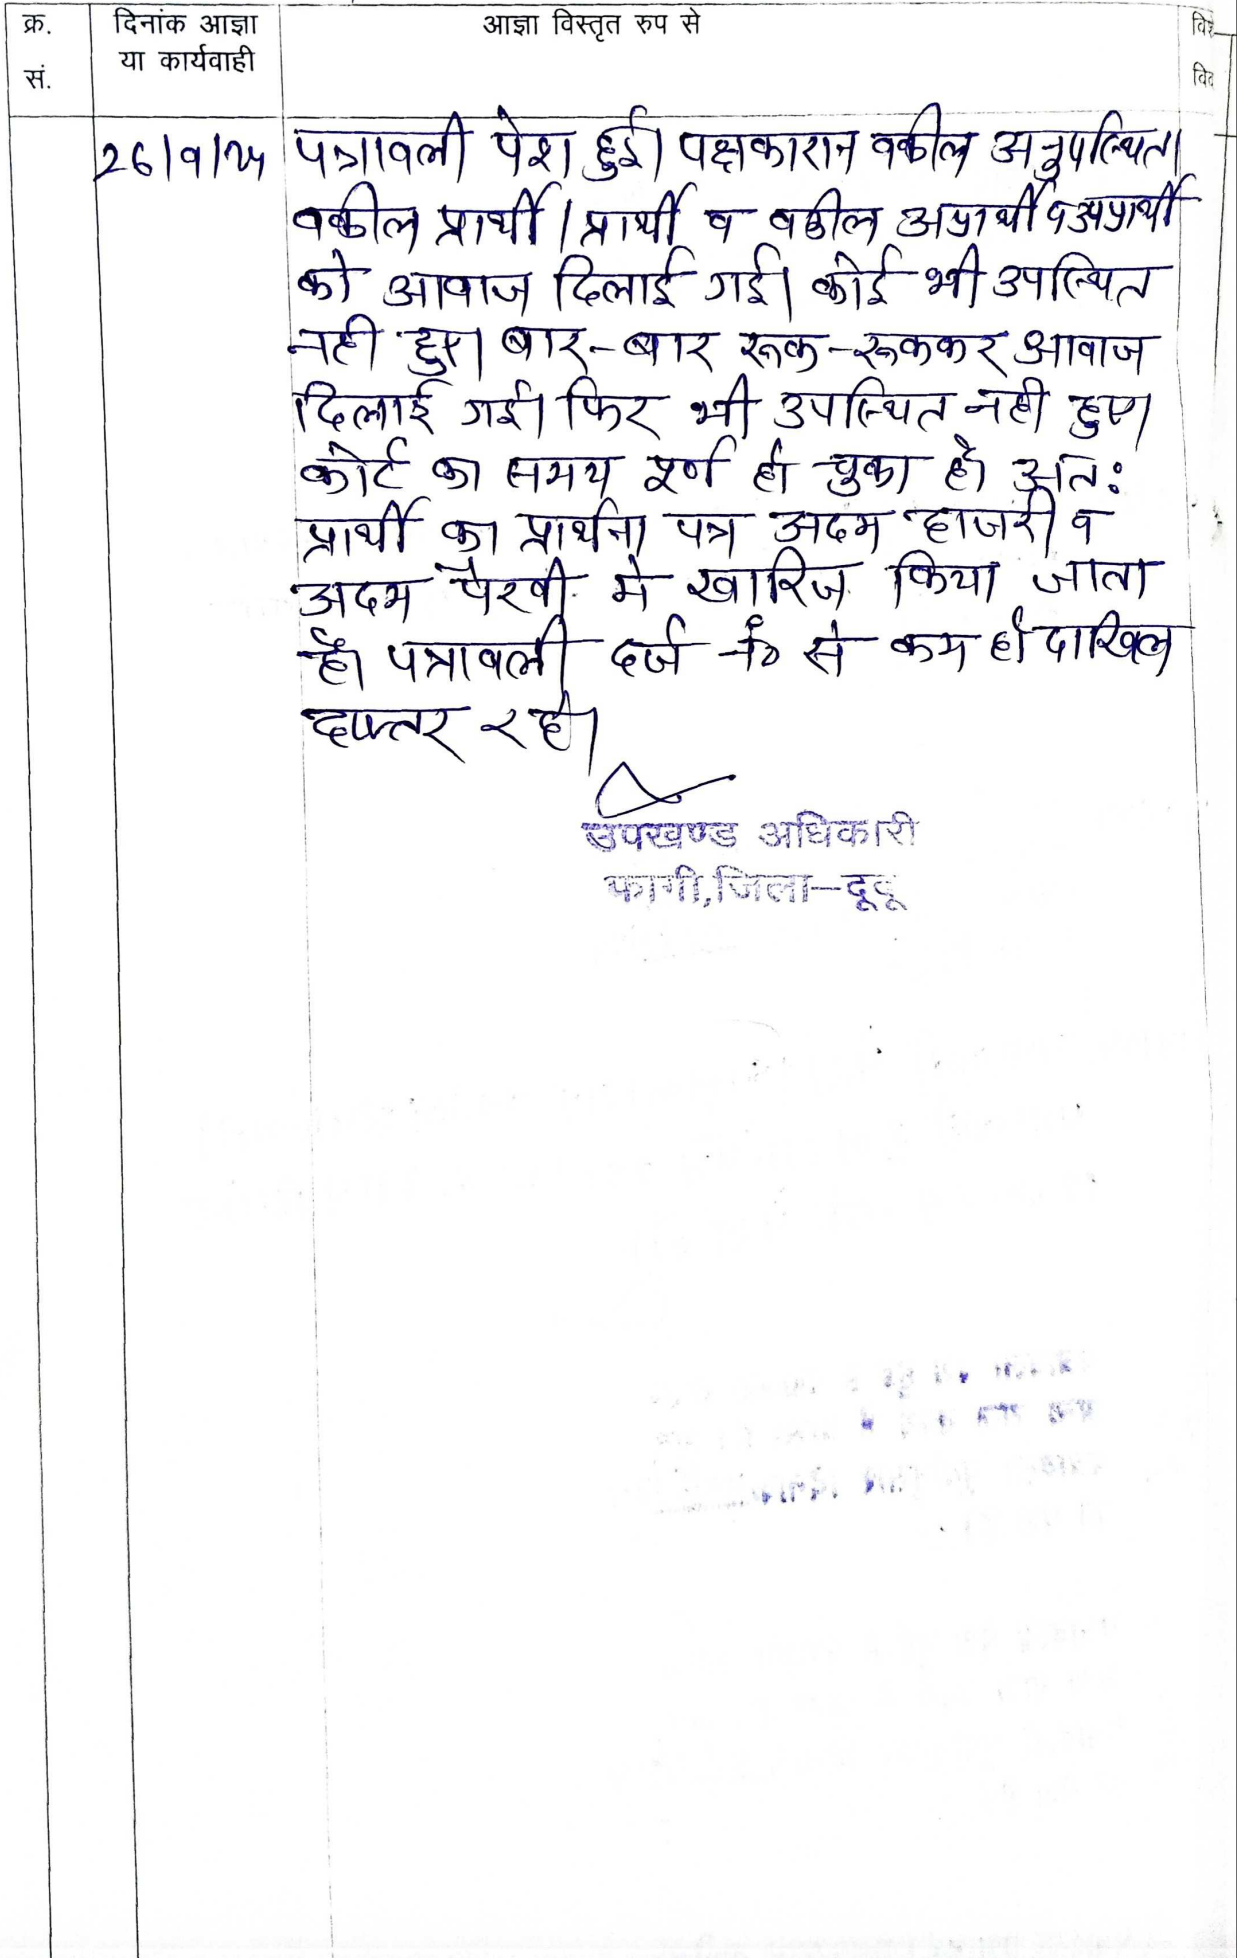 क्र. सं.
दिनांक आज्ञा या कार्यवाही
आज्ञा विस्तृत रुप से
26/9/24
पत्रावली पेश हुई। पक्षकारान वकील अनुपस्थित।
वकील प्रार्थी/प्रार्थी व वकील अप्रार्थी व अप्रार्थी
को आवाज दिलाई गई। कोई भी उपस्थित
नही हुए। बार-बार रूक-रूककर आवाज
दिलाई गई। फिर भी उपस्थित नही हुए।
कोर्ट का समय पूर्ण हो चुका है अतः
प्रार्थी का प्रार्थना पत्र अदम हाजरी व
अदम पैरवी मे खारिज किया जाता
है। पत्रावली दर्ज नं० से कम हो दाखिल
दफ्तर रहे।
उपखण्ड अधिकारी
फागी,जिला-दूदू